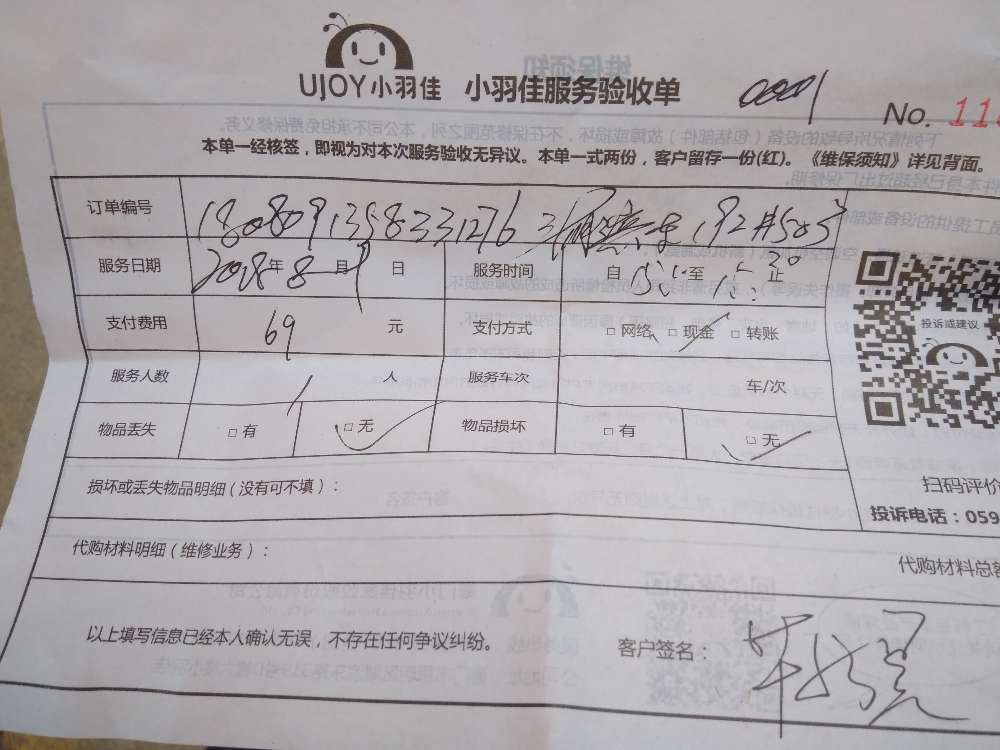 UJOY小羽佳 小羽佳服务验收单 0001
No. 11
本单一经核签，即视为对本次服务验收无异议。本单一式两份，客户留存一份(红)。《维保须知》详见背面。
订单编号 1808091358331276
服务日期 2018年8月9日 服务时间 自 至 止
支付费用 69 元 支付方式 □ 网络 □ 现金 □ 转账
投诉或建议
服务人数 1 人 服务车次 车/次
物品丢失 □ 有 □ 无 物品损坏 □ 有 □ 无
损坏或丢失物品明细（没有可不填）：
扫码评价
投诉电话：059
代购材料明细（维修业务）：
代购材料总
以上填写信息已经本人确认无误，不存在任何争议纠纷。
客户签名：